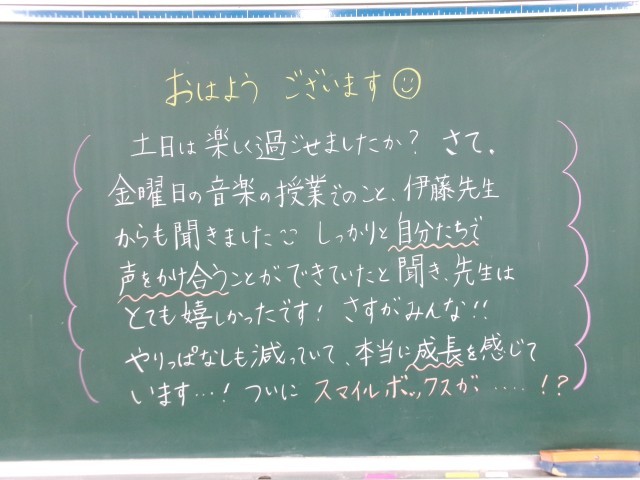 おはよう ございます
土日は楽しく過ごせましたか? さて。
金曜日の音楽の授業でのこと、伊藤先生
からも聞きました しっかりと自分たちで
声をかけ合うことができていたと聞き、先生は
とても嬉しかったです! さすがみんな!!
やりっぱなしも減っていて、本当に成長を感じて
います…! ついに スマイルボックスが……!?